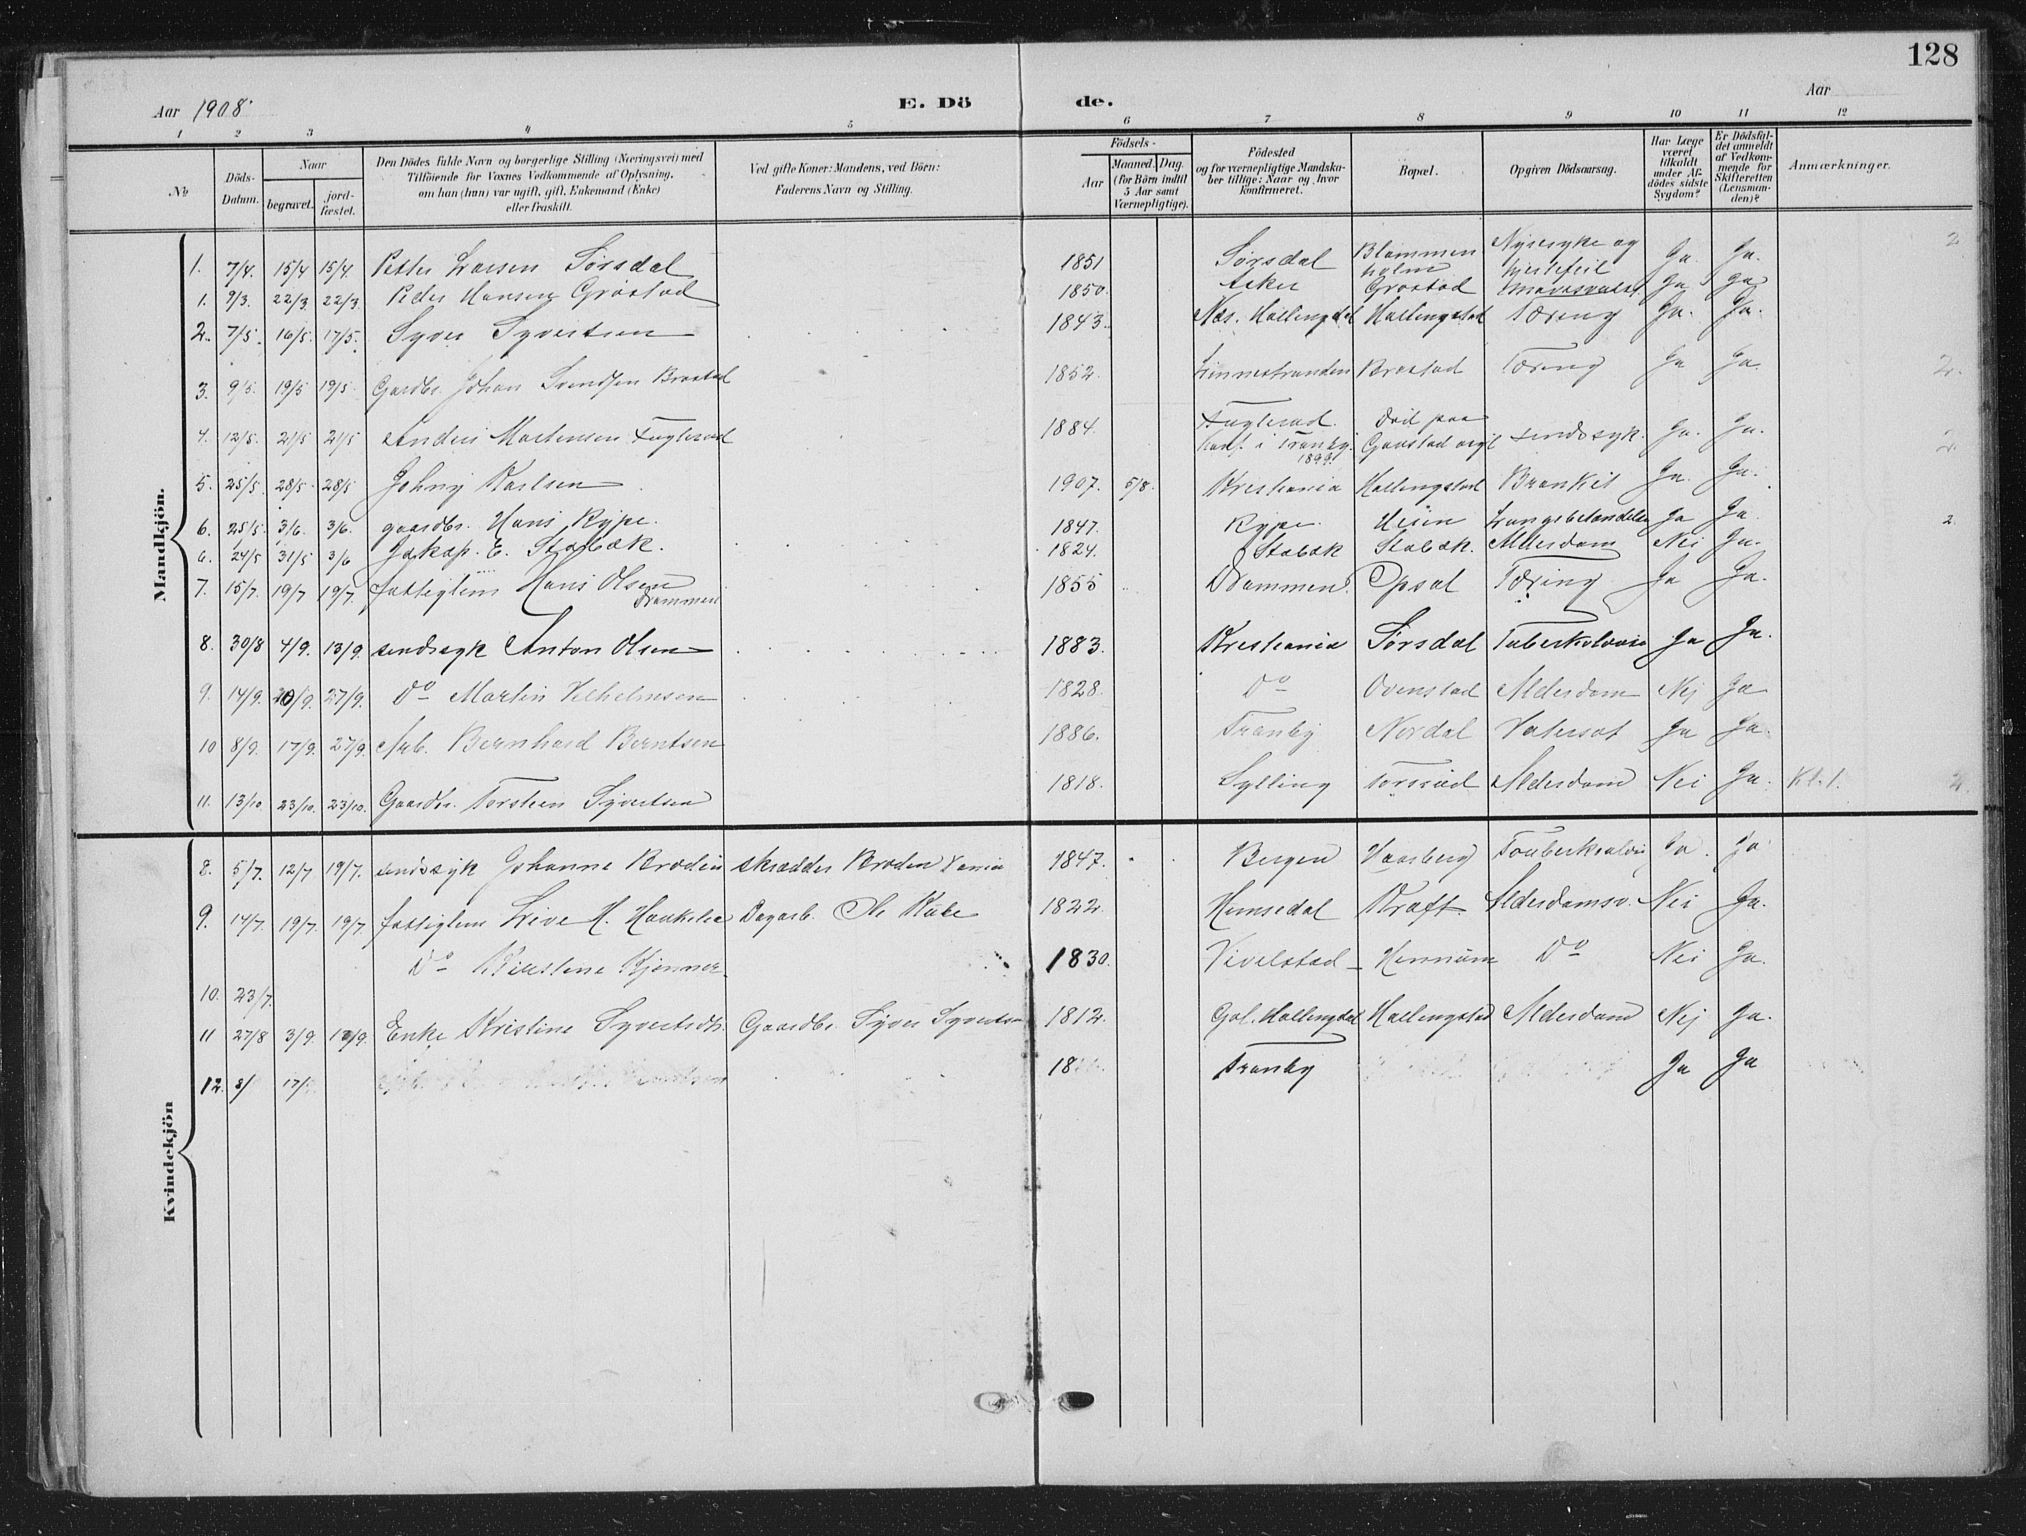 128
Aar 1908. E. Dö de. Aar
1 2 3 4 5 6 7 8 9 10 11 12
No Döds-Datum. Naar begravet. jord-fæstet. Den Dödes fulde Navn og borgerlige Stilling (Næringsvei) med Tilföiende for Voxnes Vedkommende af Oplysning, om han (hun) var ugift, gift, Enkemand (Enke) eller fraskilt. Ved gifte Koner: Mandens, ved Börn: Faderens Navn og Stilling. Födsels- Aar Maaned. Dag. (for Börn indtil 5 Aar samt Værnepligtige). Födested og for værnepligtige Mandskaber tillige: Naar og hvor konfirmeret. Bopæl. Opgiven Dödsaarsag. Har Læge været tilkaldt under Afdödes sidste Sygdom? Er Dödsfaldet anmeldt af Vedkommende for Skifteretten (Lensmanden)? Anmærkninger.
Mandkjön.
1. 7/4. 15/4 15/4. Petter Larsen Sørsdal 1851 Sørsdal Blommenholm Nyresyke og hjertefeil Ja. Ja. 2
1. 9/3. 22/3 22/3. Peder Hansen Grøstad 1850. Asker Grøstad Mavesvulst Ja Ja
2. 7/5. 16/5. 17/5. Syver Syvertsen 1843. Næs. Hallingdal Hallingstad Tæring Ja. Ja.
3. 9/5. 19/5 19/5. Gardbr. Johan Svendsen Brøstad 1852. Linnestranden Brøstad Tæring Ja Ja. 2.
4. 12/5. 21/5 21/5 Anders Mortensen Fuglerud 1884. Fuglerud. Konf. i Tranby. 1899. Død paa Gaustad asyl sindssyk. Ja. Ja. 2
5. 25/5. 28/5. 28/5 Johny Karlsen 1907. 5/8. Kristiania Hallingstad Bronkit Ja. Ja.
6. 25/5 3/6. 3/6. gaardbr. Hans Rype. 1847. Rype. Heien Lungebetændelse Ja Ja. 2.
6. 24/5 31/5 3/6 Jakop. E. Stabæk. 1824. Stabæk Stabæk. Alderdom Nei Ja.
7. 15/7. 19/7 19/7. fattiglem Hans Olsen Drammen 1855 Drammen. Opsal Tæring Ja Ja.
8. 30/8 4/9. 13/9. sindssyk Anton Olsen 1883. Kristiania Sørsdal Tuberkolose Ja Ja.
9. 14/9. 20/9. 27/9. Do Martin Vilhelmsen 1828. Do Ovenstad Alderdom Nej Ja
10 8/9. 17/9. 27/9. Arb. Bernhard Berntsen 1886. Tranby Nordal Vatersot Ja Ja.
11. 13/10. 23/10. 23/10. Gaardbr. Torstein Syvertsen 1818. Sylling Torsrud Alderdom Nei Ja. Kl. 1. 2.
Kvindekjön
8. 5/7. 12/7 19/7. sindssyk Johanne Brodin skrædder Broden 1847. Bergen Haasberg Ja. Ja
9. 14/7. 19/7. 19/7. fattiglem Live H. Haukelie Dagarb. Ole 1822. Hemsedal Kraft. Alderdomsv. Nei Ja.
10. 23/7. Do Kirstine Kjenner 1830. Vivelstad Hennum Do Nei Ja.
11 27/8 3/9. 13/9. Enke Kristine Syvertsdt. Gaardbr. Syver Syvertsen 1812. Gol. Hallingdal Hallingstad Alderdom Nej Ja.
12. 8/ 17/ 18 Tranby Ja Ja